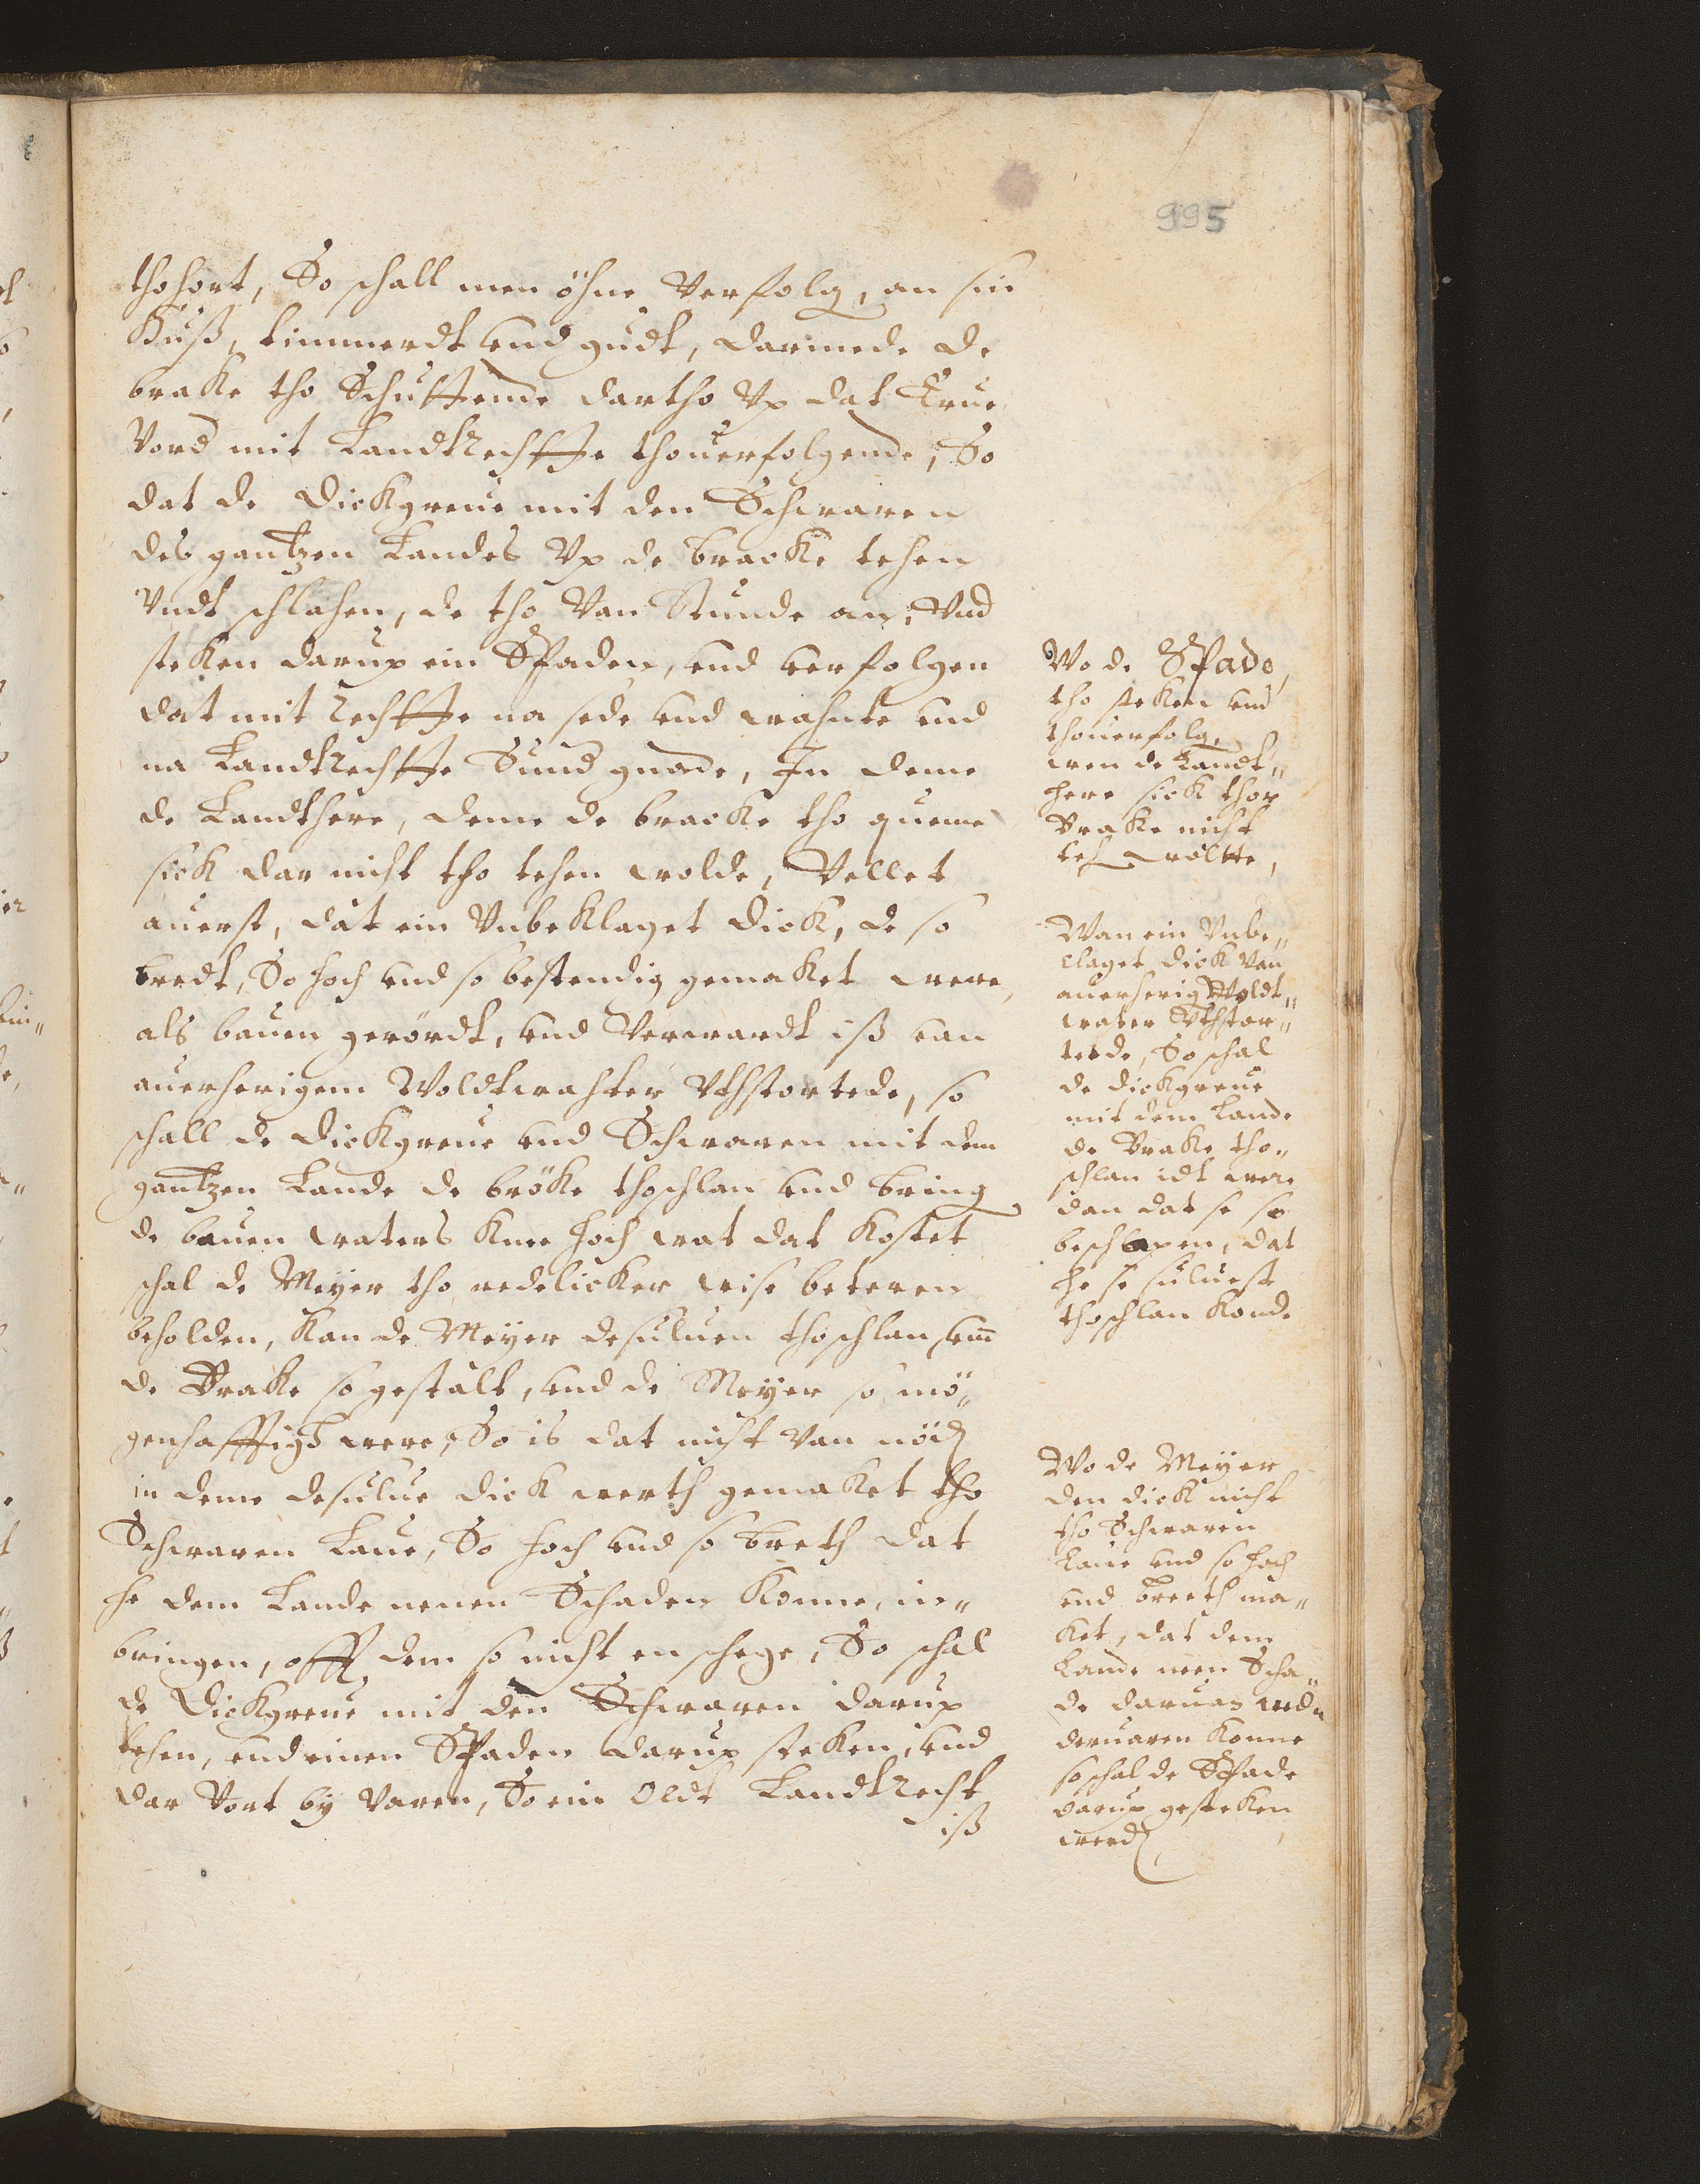 995
thohort, So schall men öhne Verfolg, an sin
Huß, timmerdt und gudt, darmede de
brake tho Schuttende dartho Vp dat Erue
Vord mit Landtrechtte thouerfolgende, So
dat de Dickgreue mit den Schwaren
des gantzen Landes Vp de bracke tehen
Vndt schlahen, de tho Van Stunde an, Vnd
steken darup ein Spaden, und verfolgen
dat mit rechtte na sede und wahnte und
na Landtrechtte Sund gnade, In deme
de Landthere, deme de bracke tho queme
sick dar nicht tho tehen wolde, Vellet
auerst, dat ein Vnbeklaget Dick, de so
bredt, So hoch und so bestendig gemaket were,
als bauen gerördt, und Verwardt iß van
auerherigem Woldtwahter Vthstortede, so
schall de Dickgreue und Schwaren mit dem
gantzen Lande de bröke thoschlan und bring
de bauen waters knee hoch wat dat kostet
schal de Meyer tho redelicker wise beteren
beholden, kan de Meyer desuluen thoschlan, und
de Brake so gestalt, und de Meyer so mö„
genhafftigh were, So is dat nicht van nödh
in deme desulue Dick werth gemaket tho
Schwaren Laue, So hoch und so breth dat
he dem Lande nenen Schaden konne, in„
bringen, off dem so nicht en schege, So schal
de Dickgreue mit den Schwaren darup
tehen, und einen Spaden darup steken, und
dar Vort by Varen, So ein Oldt Landtrecht
iß
Wo de Spade,
tho steken und
thouerfolg,
wen de Landt„
here sick thor
Brake nicht
teh woltte,
Wan ein Vnbe„
claget Dick van
auerherig Woldt„
water Vthstor„
tede, So schal
de Dickgreue
mit dem Lande
de Brake tho„
schlan idt were
dan dat se so
beschapen, dat
he se suluest
thoschlan konde
Wo de Meyer
den Dick nicht
tho Schwaren
Laue und so hoch
und breeth ma„
ket, dat dem
Lande neen Scha„
de daruan wed„
deruaren konne
so schal de Spade
darup gesteken
werd